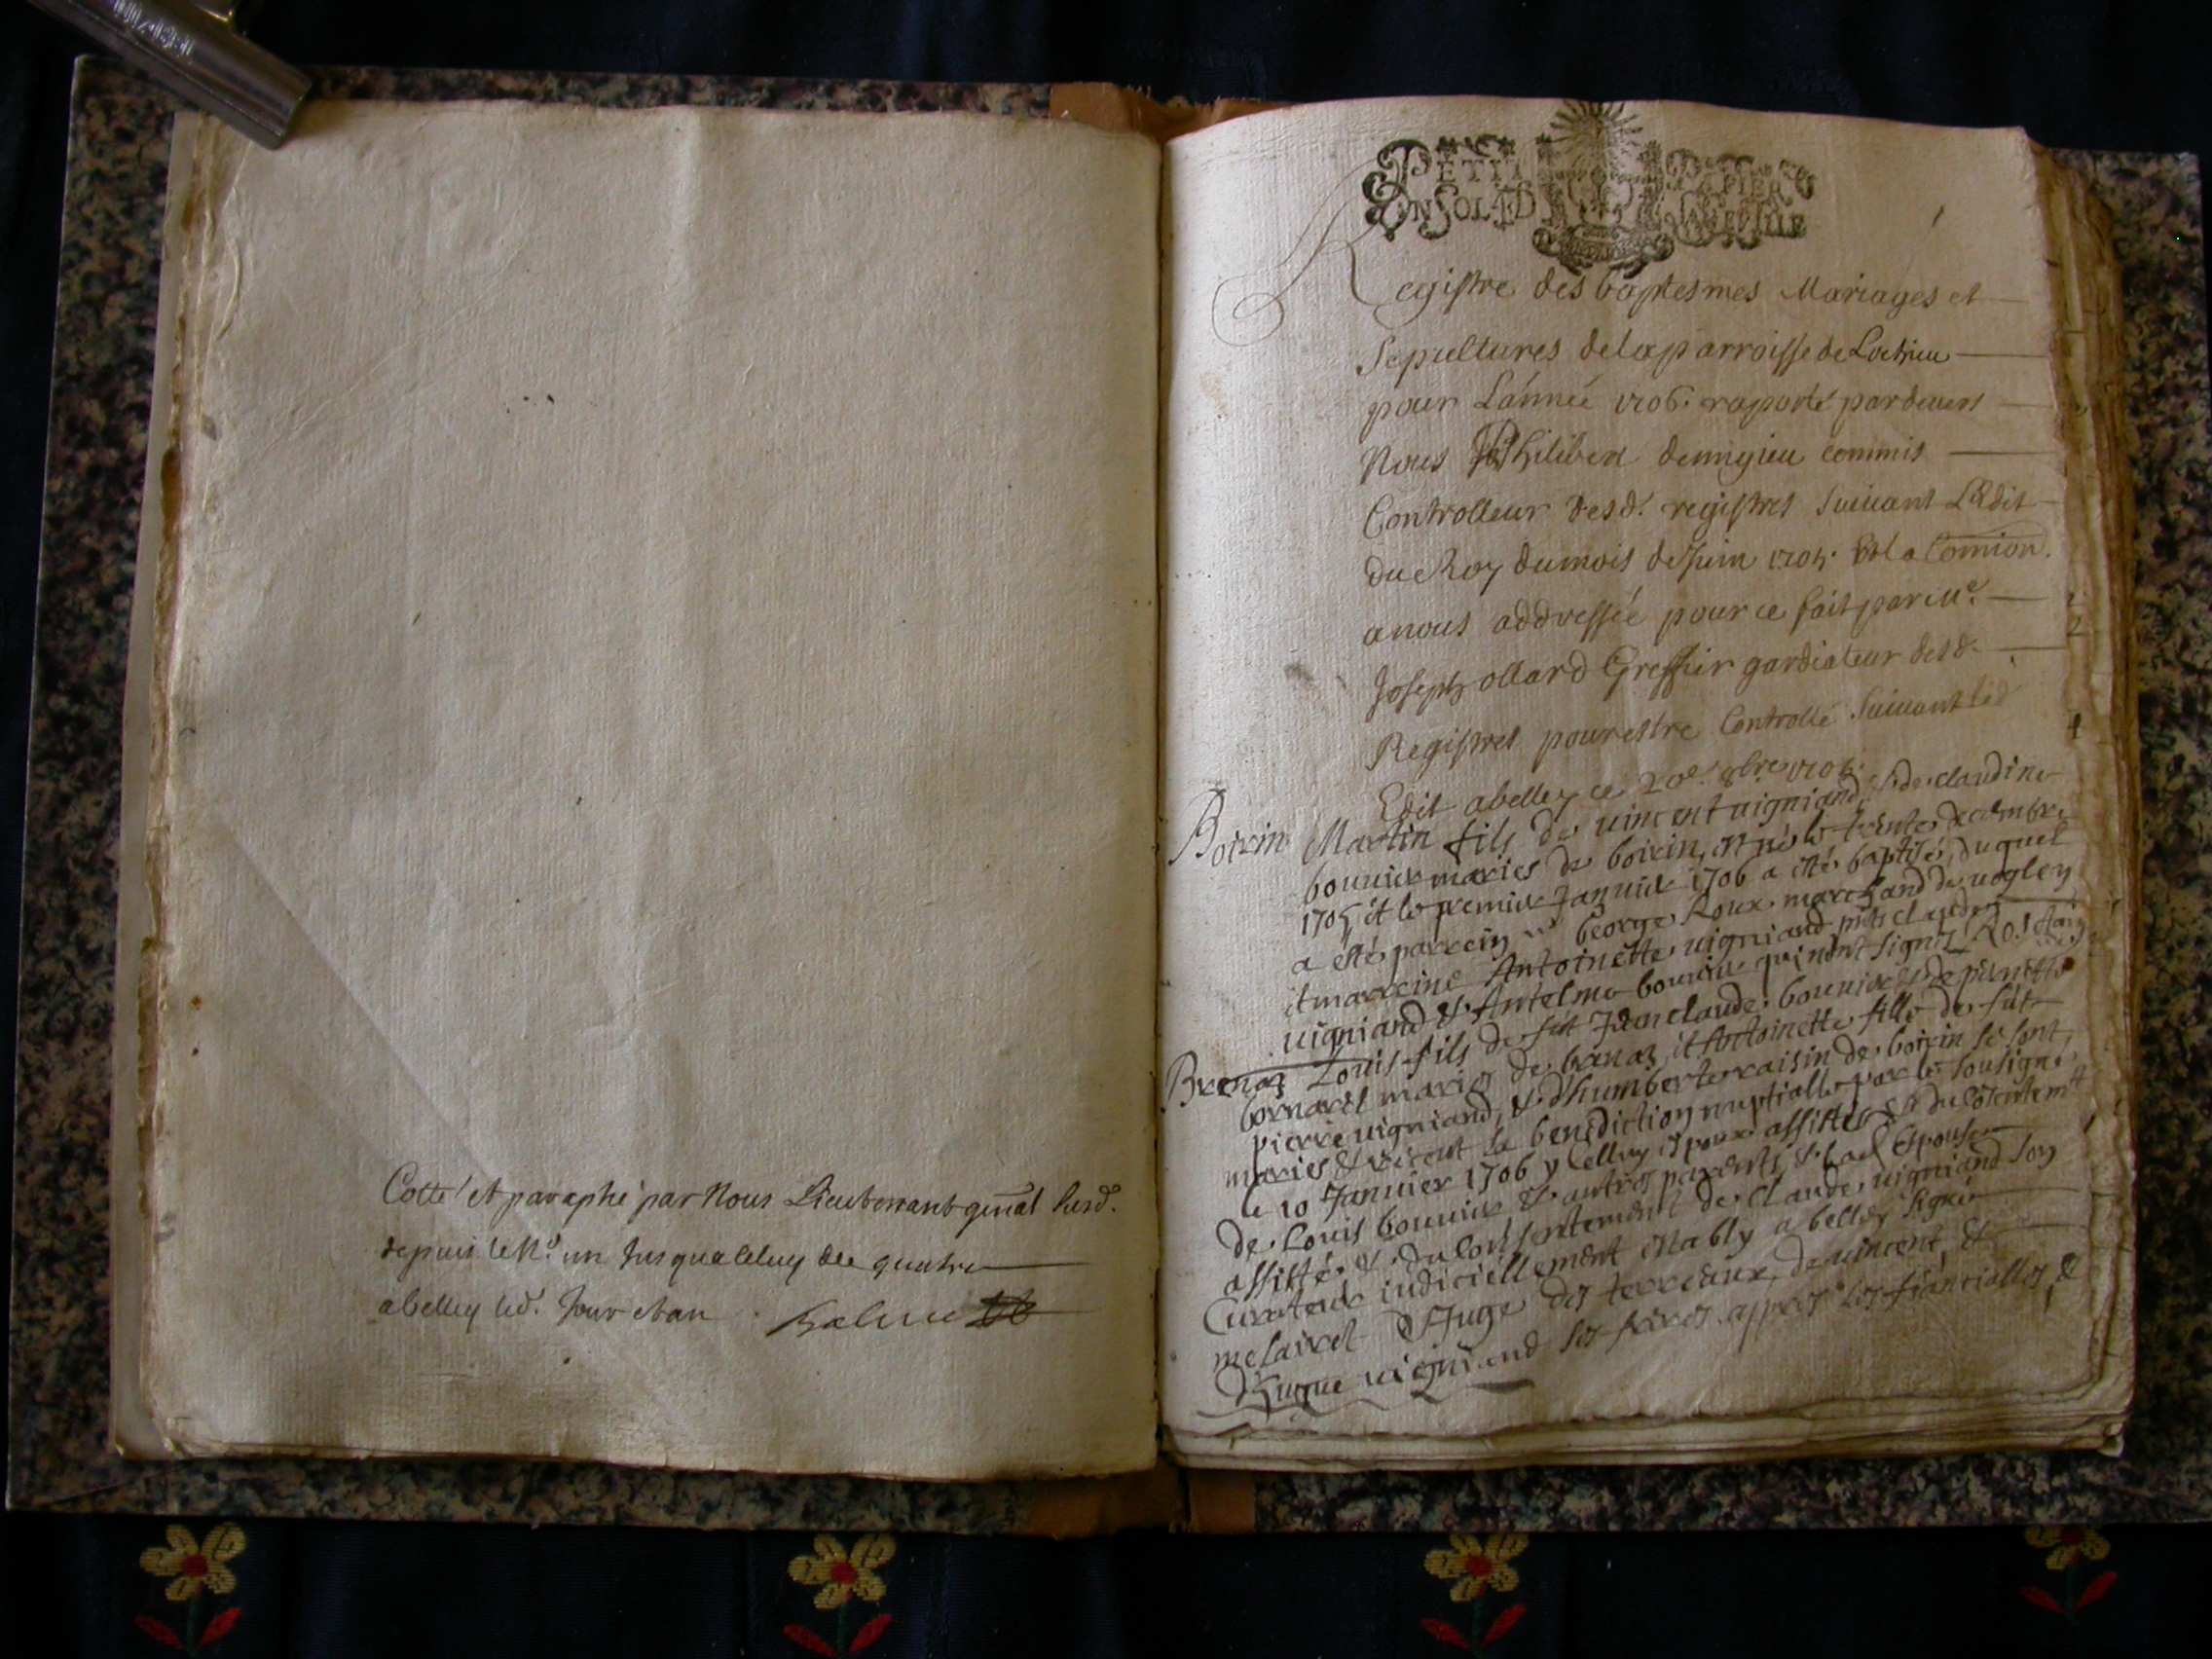 Cotté et paraphé par Nous Lieutenant gnãl susd.
depuis le No. un Jusqua celuy de quatre
abelley led. Jour et an
PETIT PAPIER
UN SOL 4 D LA FEUILLE
Registre des baptesmes Mariages et
Sepultures de la parroisse de Lochieu
pour L'année 1706. raporté pardevers
Nous Philibert demigieu commis
Controlleur desd. registres suivant L'Edit
du Roy du mois de Juin 1705. Et la Comion.
a nous addressée pour ce fait par Me.
Joseph ollard Greffier gardiateur desd.
Registres pour estre Controllé suivant led
Edit a belley ce 20e. 8bre 1705.
Boirin Martin fils de vincent vigniand, & de claudine
bouvier maries de boirin, est né le trente decembre
1705 et le premier Janvier 1706 a esté baptisé, duquel
a esté parrein George Roux marchand de vogley
et marreine Antoinette vigniand, pnts claude
vigniand & Antelme bouvier qui n'ont signez
Brenaz Louis fils de fut Jean claude bouvier & de pernette
bornarel mariez de brenaz, et Antoinette fille de fut
pierre vigniand, & d'humberte raisin de boirin se sont
mariés & receut la benediction nuptialle par le sousigné
le 10 Janvier 1706 y Celluy espoux assisté
de Louis bouvier & autres parents, & lad Espouse
assistée & du consentement de claude vigniand son
Curateur judiciellement establÿ a belley signé
melairet & Juge des terreaux, de vincent, &
hugue vigniand ses freres appres les fiancialles &